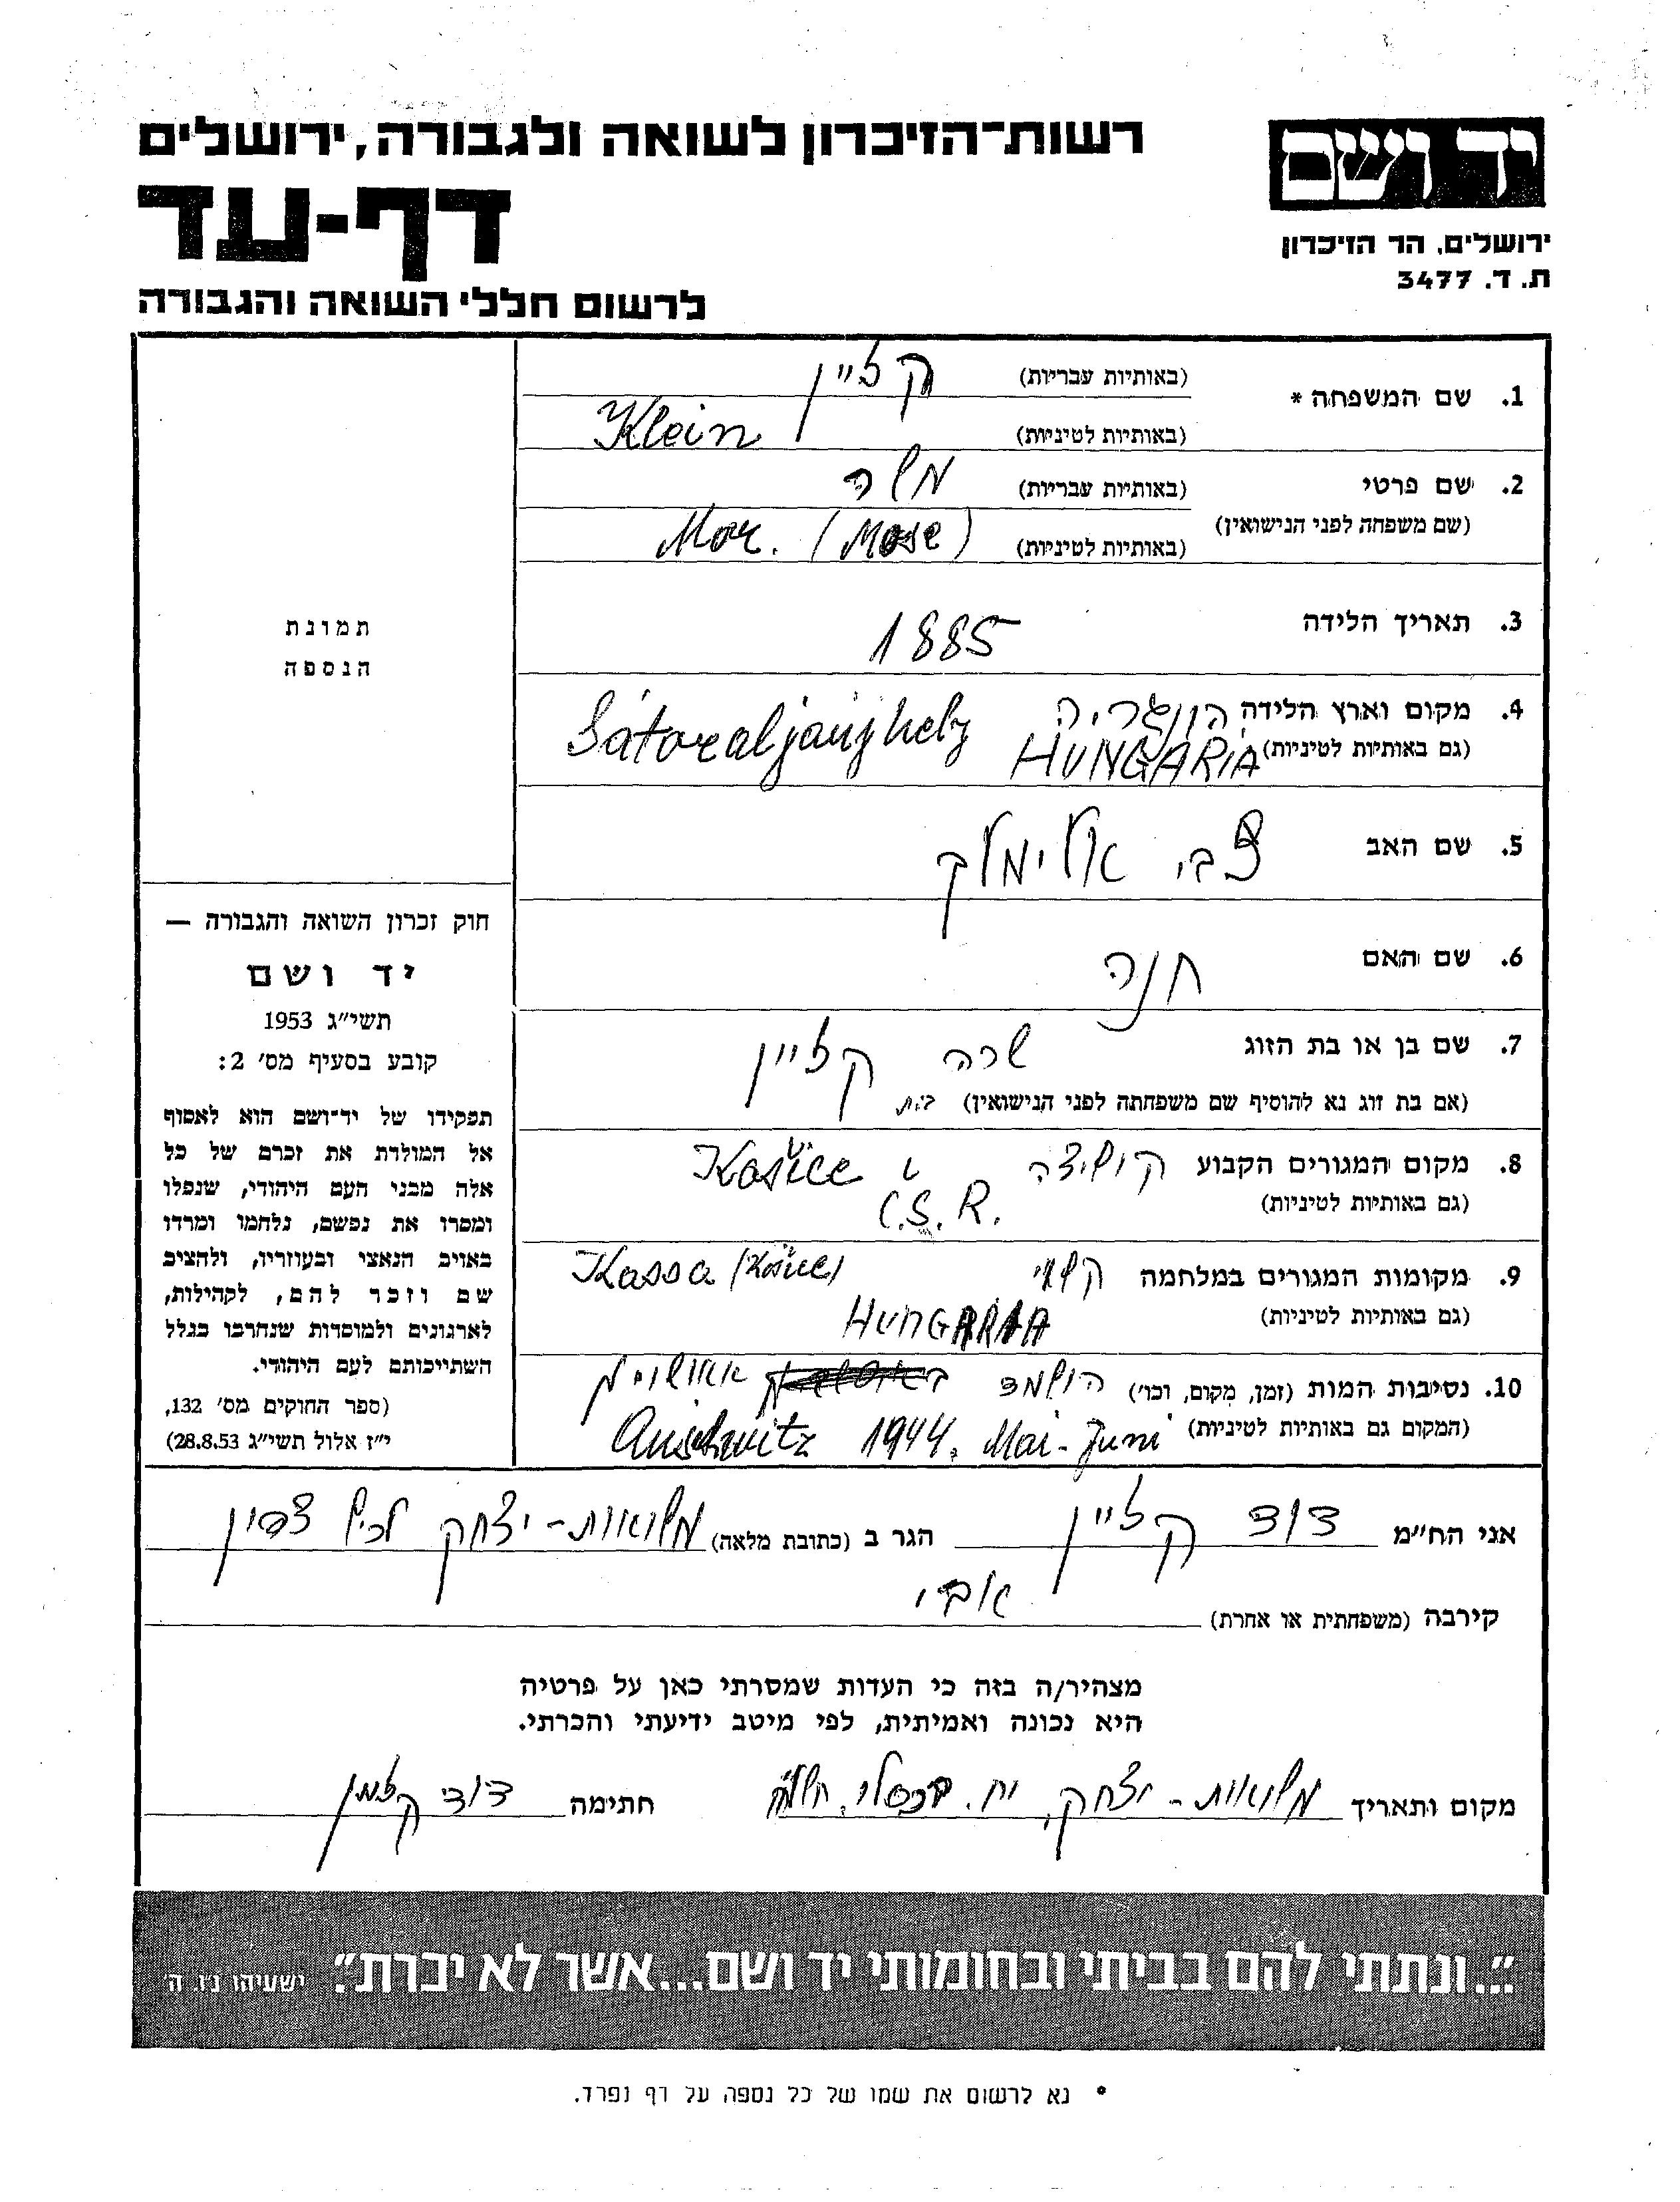 רשות־הזיכרון לשואה ולגבורה, ירושלים
יד ושם
דף-עד
ירושלים, הר הזיכרון
ת. ד. 3477
לרשום חללי השואה והגבורה
1. שם המשפחה * (באותיות עבריות) קליין
(באותיות לטיניות) Klein
2. שם פרטי (באותיות עבריות) משה
(שם משפחה לפני הנישואין) (באותיות לטיניות) Mor. (Mose)
3. תאריך הלידה 1885
4. מקום וארץ הלידה הונגריה Sátoraljaújhely
(גם באותיות לטיניות) HUNGARIA
5. שם האב צבי אלימלך
6. שם האם חנה
7. שם בן או בת הזוג שרה קליין
(אם בת זוג נא להוסיף שם משפחתה לפני הנישואין)
8. מקום המגורים הקבוע קושיצה Košice
(גם באותיות לטיניות) Č.S.R.
9. מקומות המגורים במלחמה Kassa (Košice)
(גם באותיות לטיניות) HUNGARIA
10. נסיבות המות (זמן, מקום, וכו') הושמד
(המקום גם באותיות לטיניות) Auschwitz 1944. Mai-Juni
תמונת
הנספה
חוק זכרון השואה והגבורה —
יד ושם
תשי"ג 1953
קובע בסעיף מס' 2:
תפקידו של יד־ושם הוא לאסוף
אל המולדת את זכרם של כל
אלה מבני העם היהודי, שנפלו
ומסרו את נפשם, נלחמו ומרדו
באויב הנאצי ובעוזריו, ולהציב
שם וזכר להם, לקהילות,
לארגונים ולמוסדות שנחרבו בגלל
השתייכותם לעם היהודי.
(ספר החוקים מס' 132,
י"ז אלול תשי"ג 28.8.53)
אני הח"מ דוד קליין הגר ב (כתובת מלאה) משואות-יצחק לכיש צפון
קירבה (משפחתית או אחרת) אבי
מצהיר/ה בזה כי העדות שמסרתי כאן על פרטיה
היא נכונה ואמיתית, לפי מיטב ידיעתי והכרתי.
מקום ותאריך משואות-יצחק, יח. בכסלו, חתימה דוד קליין
"...ונתתי להם בביתי ובחומותי יד ושם...אשר לא יכרת". ישעיהו נ"ו ה'
* נא לרשום את שמו של כל נספה על דף נפרד.